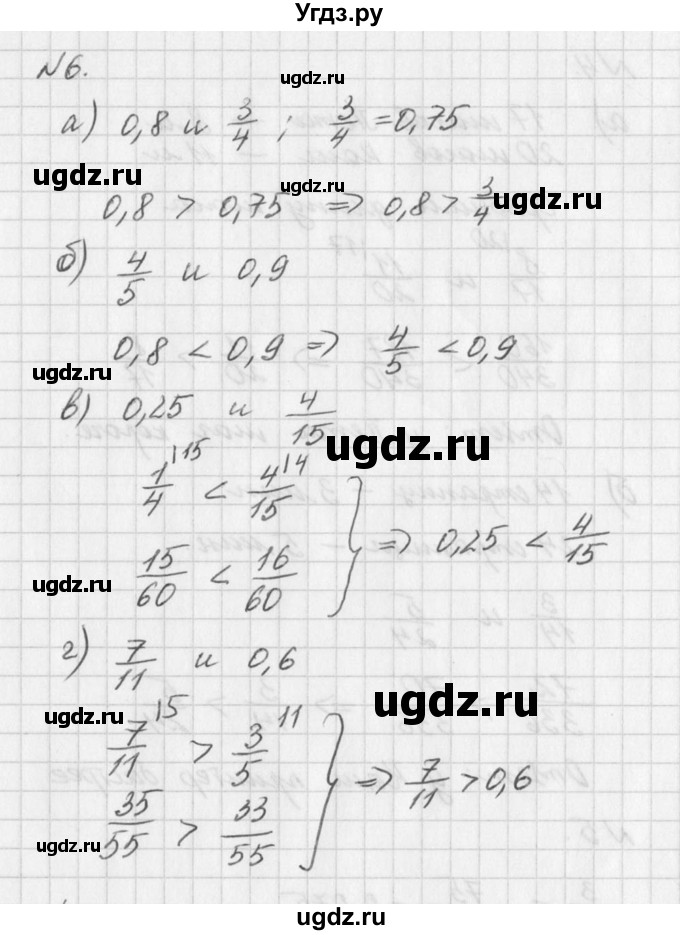 Угдз.ру
№6.
ugdz.ru
а) 0,8 и 3/4 ; 3/4 = 0,75
ugdz.ru ugdz.ru
0,8 > 0,75 => 0,8 > 3/4
ugdz.ru
б) 4/5 и 0,9
0,8 < 0,9 => 4/5 < 0,9
ugdz.ru
в) 0,25 и 4/15
ugdz.ru
1/4 |15 < 4/15 |4
=> 0,25 < 4/15
15/60 < 16/60
ugdz.ru
г) 7/11 и 0,6
ugdz.ru
ugdz.ru
7/11 |5 > 3/5 |11
=> 7/11 > 0,6
35/55 > 33/55
ugdz.ru
ugdz.ru